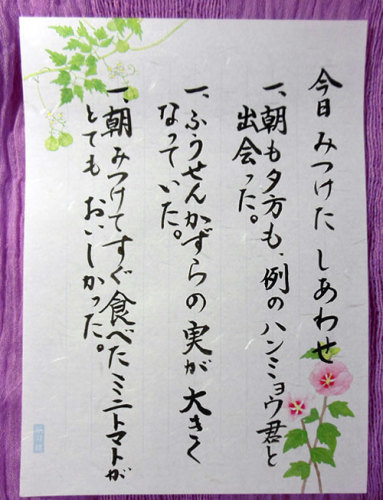 今日みつけたしあわせ
一、朝も夕方も、例のハンミョウ君と
出会った。
一、ふうせんかずらの実が大きく
なっていた。
一、朝みつけてすぐ食べたミニトマトが
とてもおいしかった。